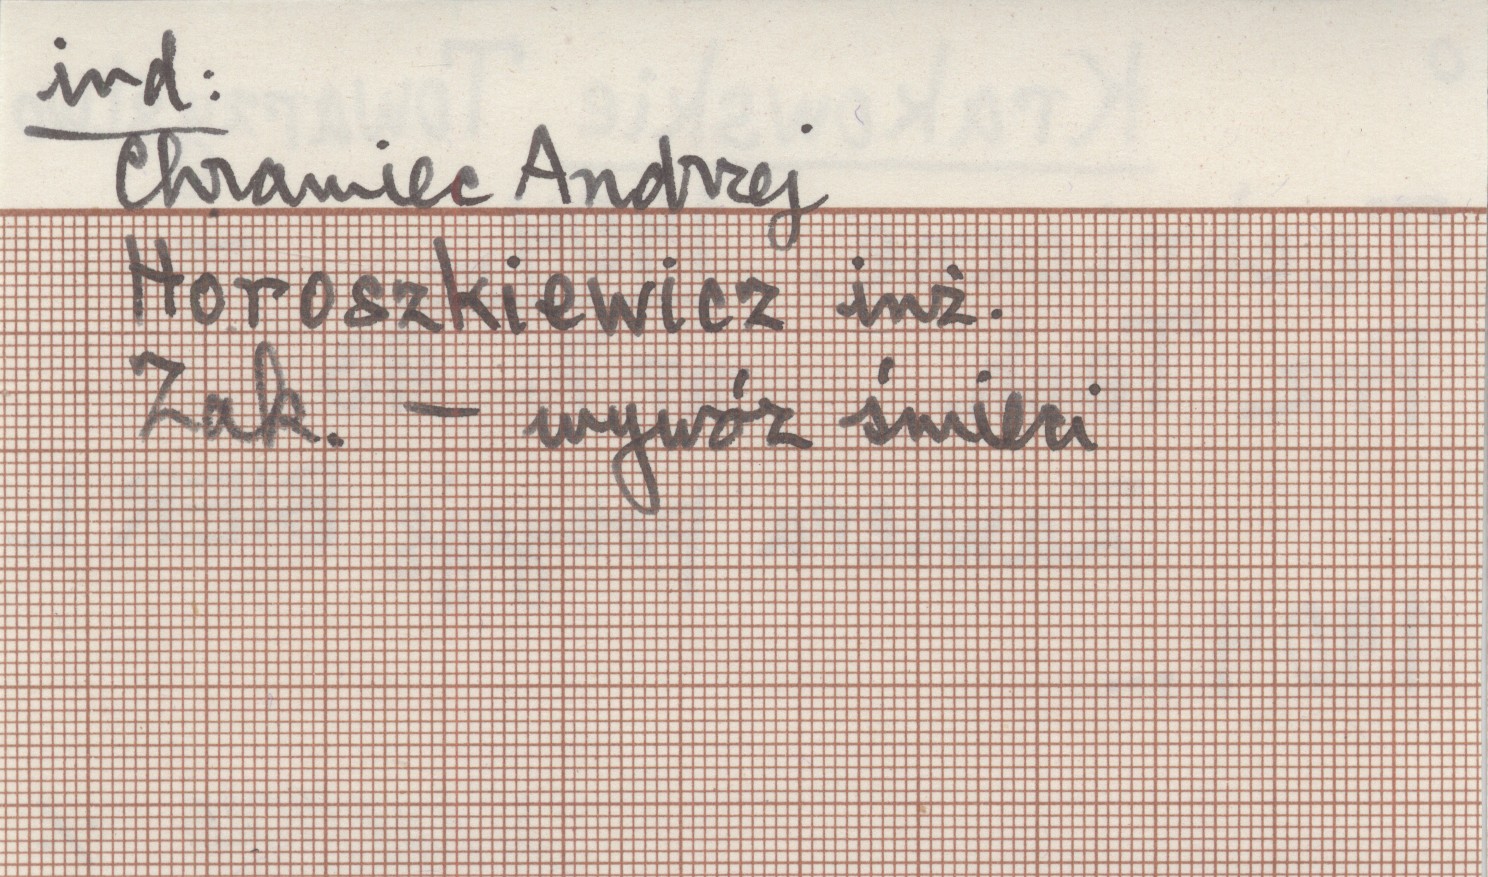 ind:
Chramiec Andrzej
Horoszkiewicz inż.
Zak. – wywóz śmieci